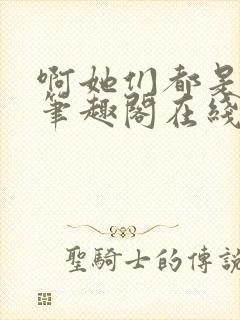 啊她们都是
筆趣閣在綫
聖騎士的傳說